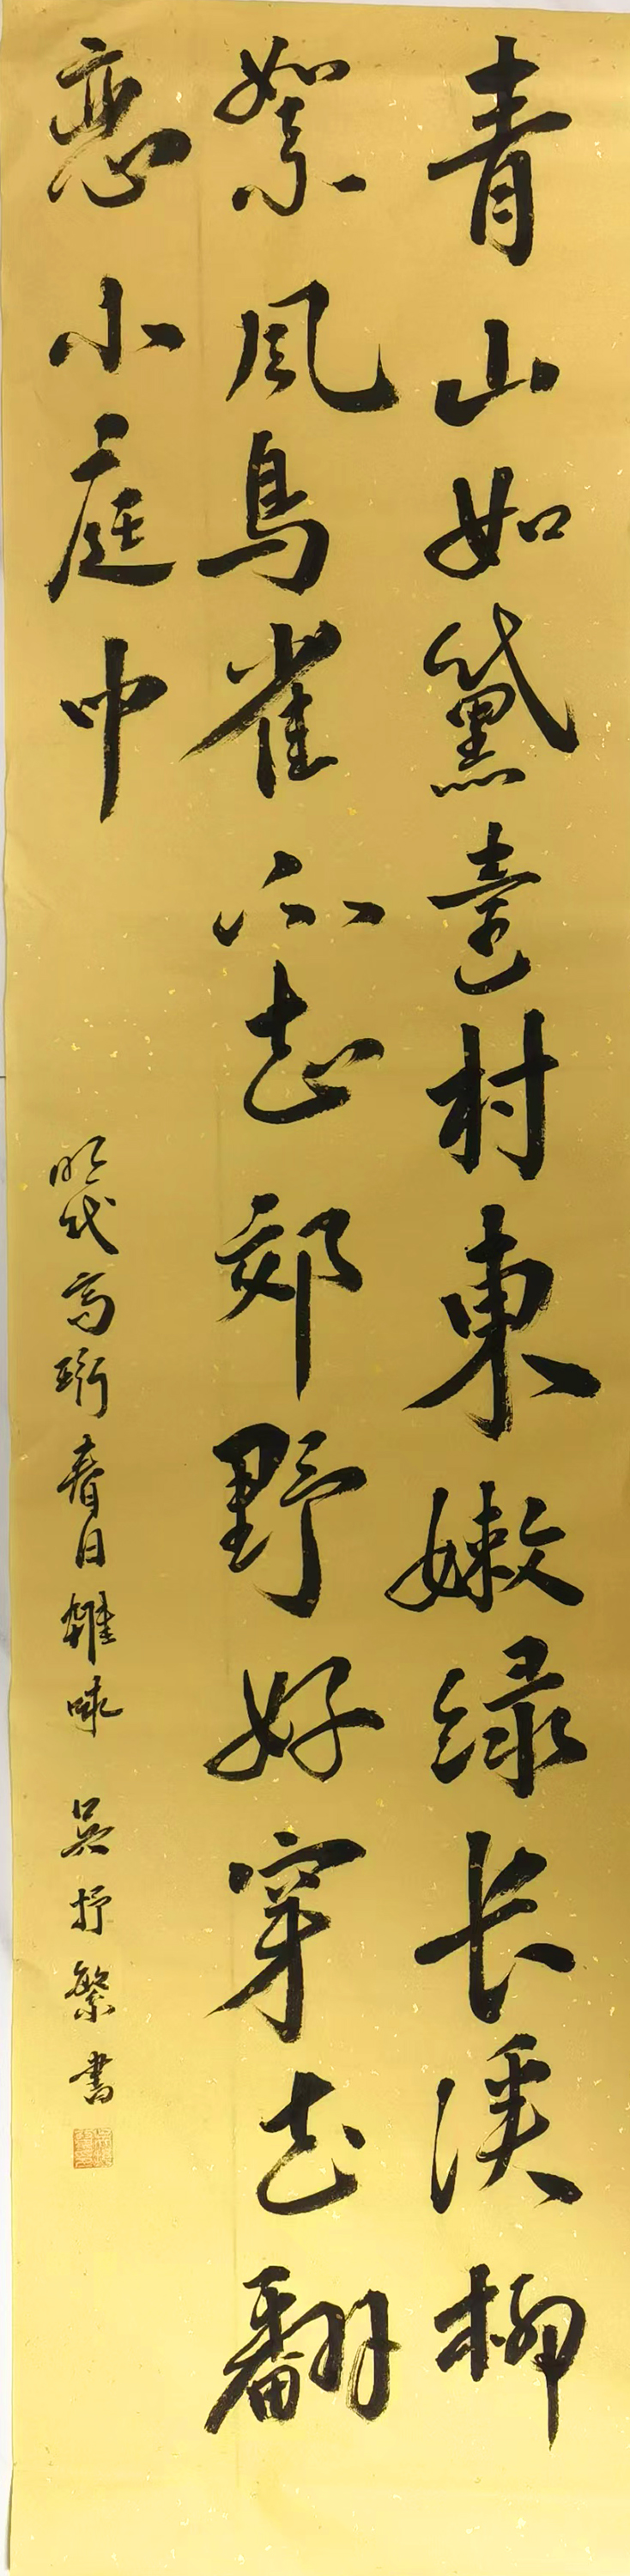 青山如黛遠村東嫩绿长溪柳
絮風鳥雀不知郊野好穿花翻
恋小庭中
明代高珩春日雜咏 吴抒繁書